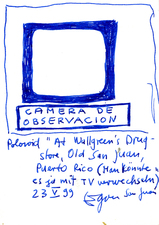 CAMERA DE
OBSERVACION
Polaroid "At Wallgreen's Drug-
store, Old San Juan,
Puerto Rico (Man könnte
es ja mit TV verwechseln)
23 V 99 San Juan